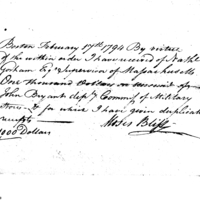 Boston February 17th 1794 By virtue
of the within order I have received of Nathl
Gorham Esqr Supervisor of Massachusetts
One thousand Dollars on account of
John Bryant depy Commisy of Military
Stores & for which I have given duplicate
receipts
Moses Bliss
1000 Dollars